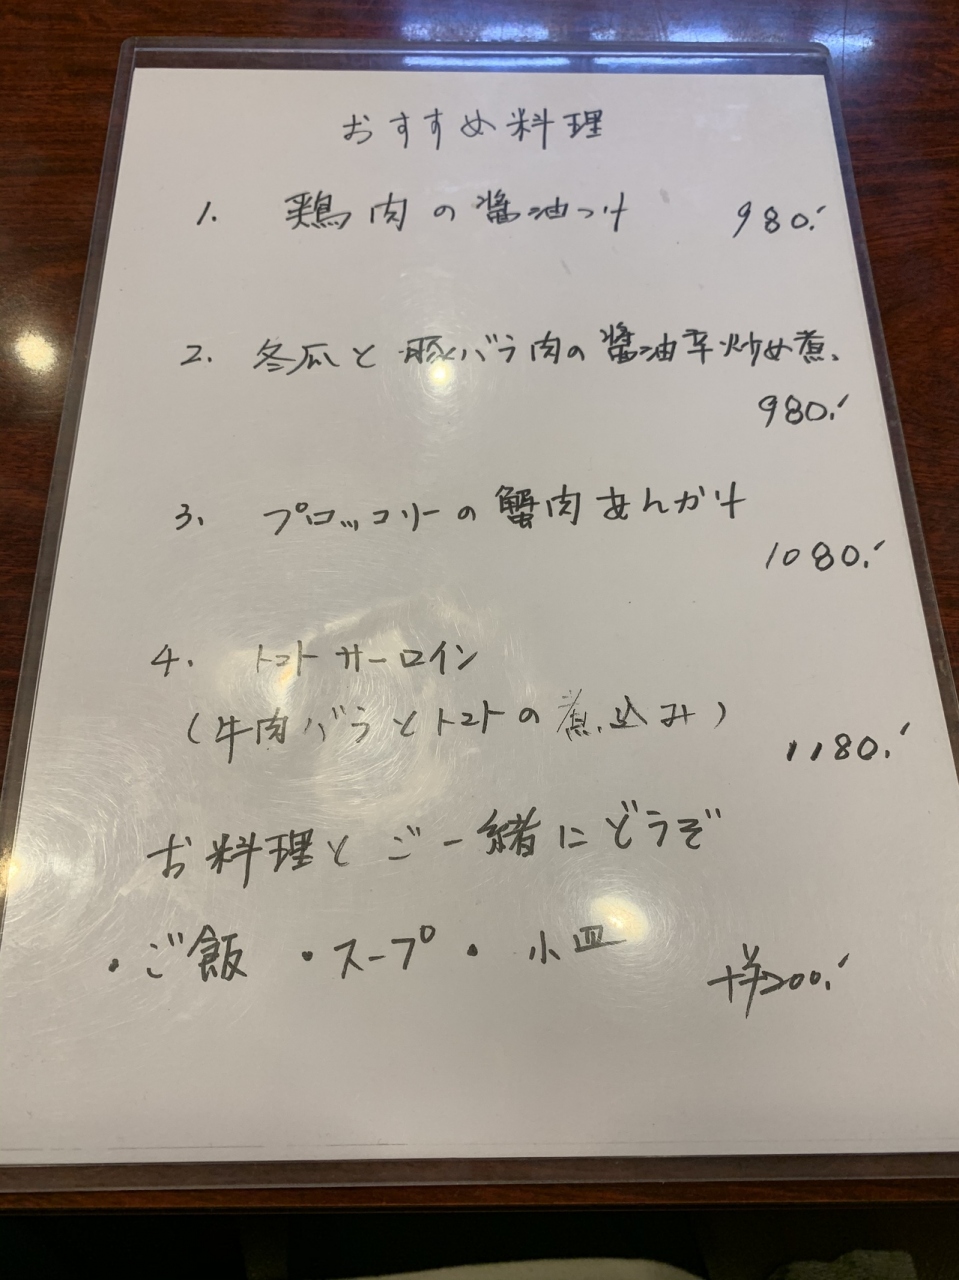 おすすめ料理
1. 鶏肉の醤油つけ 980.-
2. 冬瓜と豚バラ肉の醤油辛炒め煮
980.-
3. プロッコリーの蟹肉あんかけ
1080.-
4. トマトサーロイン
(牛肉バラとトマトの煮込み)
1180.-
お料理とご一緒にどうぞ
・ご飯 ・スープ・ 小皿
+¥200.-